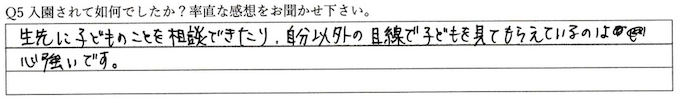 Q5 入園されて如何でしたか？率直な感想をお聞かせ下さい。
生先に子どものことを相談できたり、自分以外の目線で子どもを見てもらえているのは
心強いです。